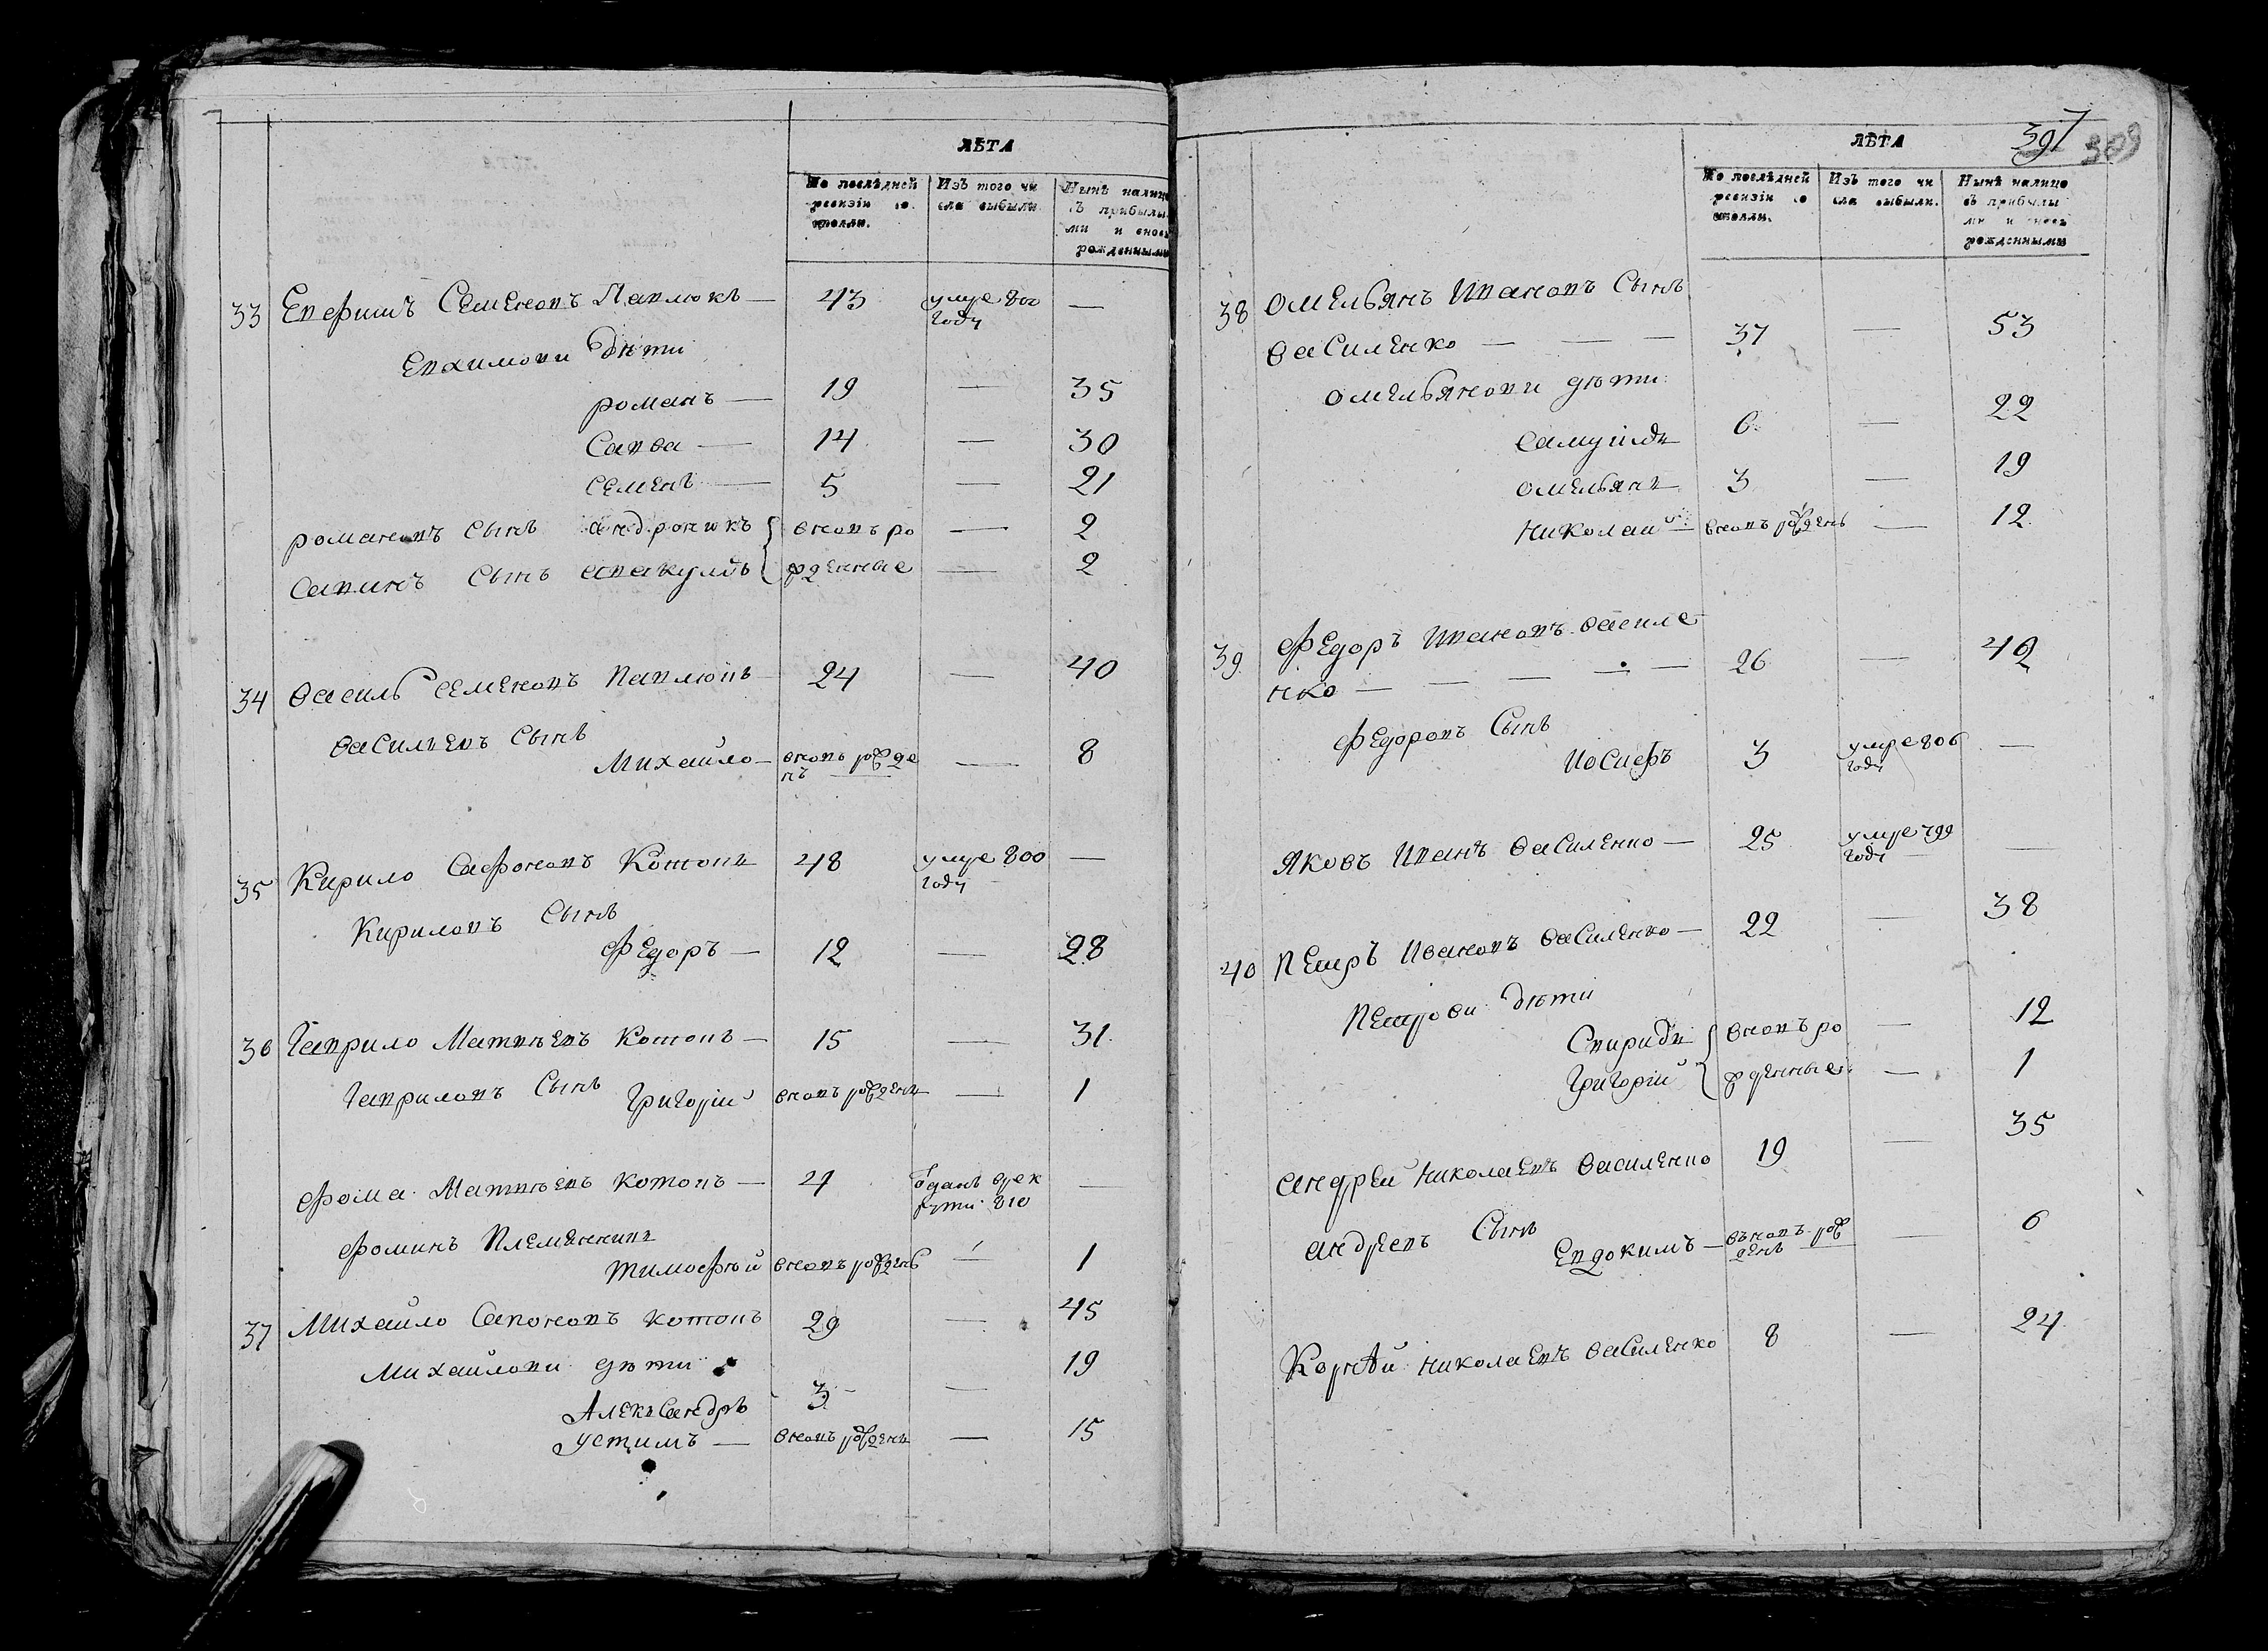 ЛѢТА
По послѣдней ревизіи состояли.
Изъ того числа выбыли
Нынѣ налицо съ прибылыми и вновь рожденными
33 Евфимъ Семеновъ Павлюкъ — 43 умре 800 —
году
Евхимови дѣти
романъ — 19 — 35
Савва — 14 — 30
Семенъ — 5 — 21
романовъ Сынъ андроникъ вновь ро — 2
Савинъ Сынъ авакумъ жденные — 2
34 Василь Семеновъ Павлюкъ 24 — 40
Василіевъ Сынъ
Михайло — вновь рожде — 8
нъ
35 Кирило Сафоновъ Котовъ 48 умре 800 —
году
Кириловъ Сынъ
Федоръ — 12 — 28
36 Гаврило Матвѣевъ Котовъ — 15 — 31
Гавриловъ Сынъ Григорій вновь рожденъ — 1
Фома Матвѣевъ Котовъ — 21 отданъ врек —
рути 810
Фоминъ Племянникъ
тимофѣй вновь рожденъ — 1
37 Михайло Сапоновъ Котовъ 29 — 45
Михайлови дѣти 19
Александръ 3 —
Устимъ — вновь рожденъ — 15
397
ЛѢТА
По послѣдней ревизіи состояли.
Изъ того числа выбыли.
Нынѣ налицо съ прибылыми и вновь рожденными
38 Омельянъ Ивановъ Сынъ
Василенко — — — 37 — 53
Омельянови дѣти
Самуилъ 6 — 22
Омельянъ 3 — 19
Николай — вновь рожденъ — 12
39 Федоръ Ивановъ Василе
нко — — — — — 26 — 42
Федоровъ Сынъ
Иосифъ 3 умре 806 —
году
Яковъ Иванъ Василенко — 25 умре 799 —
году
40 Петръ Ивановъ Василенко — 22 — 38
Петрови дѣти
Спиридн вновь ро — 12
Григорій жденные — 1
андрей Николаевъ Василенко 19 — 35
андреевъ Сынъ
Евдокимъ — вновь рож — 6
денъ
Корнѣй Николаевъ Василенко 8 — 24